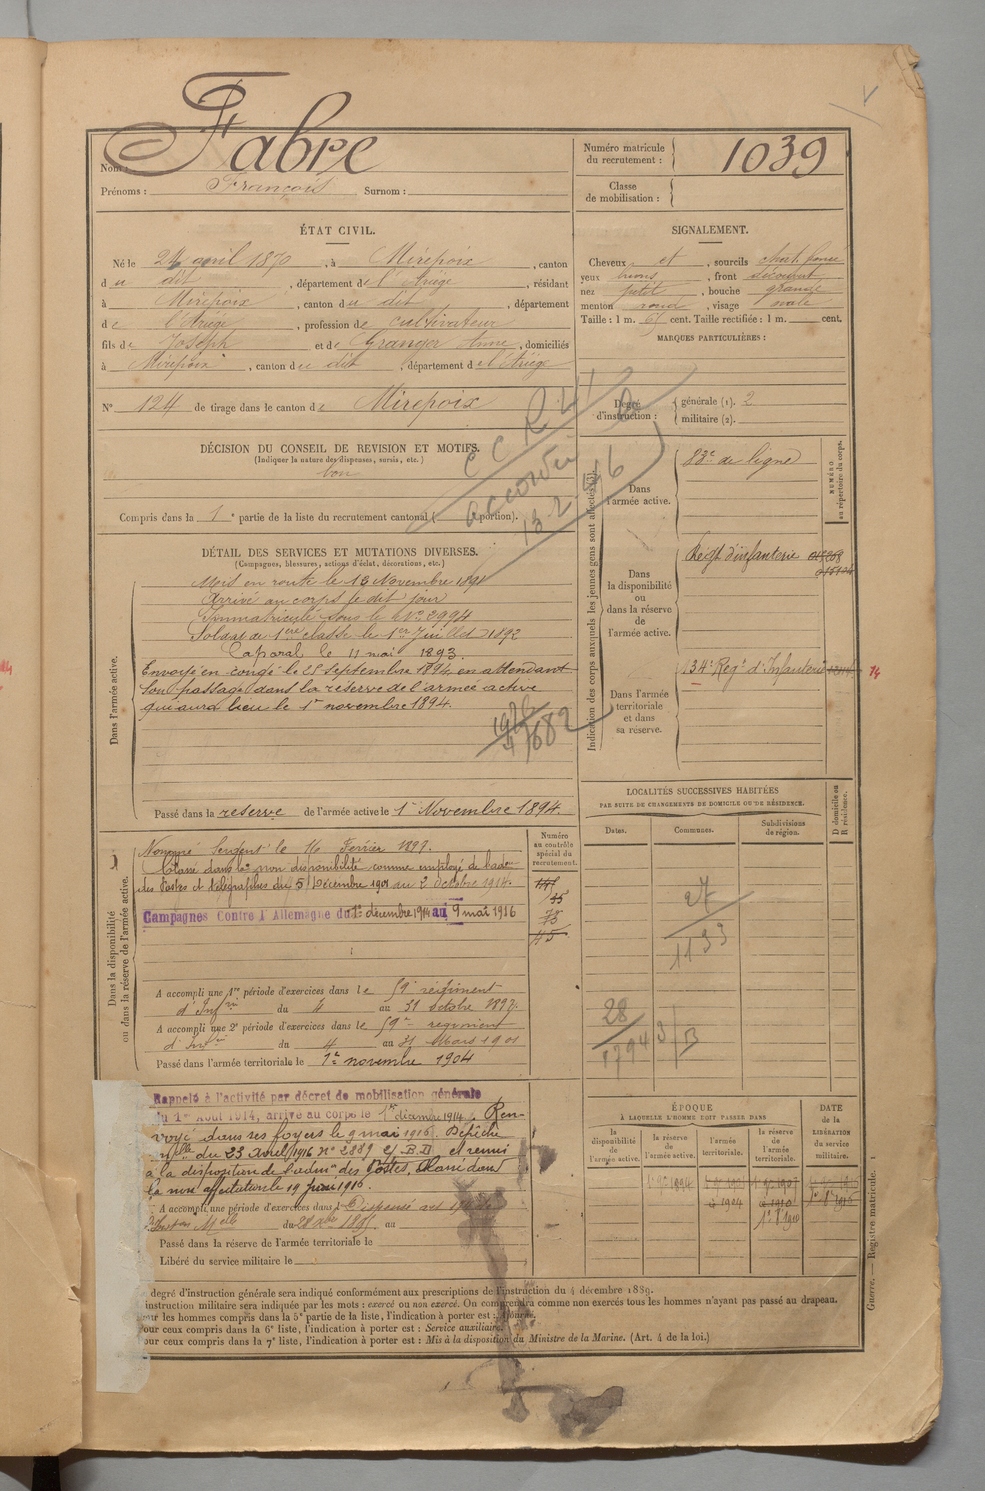 Fabre
Nom :
Prénoms : François Surnom :
Numéro matricule du recrutement : 1039
Classe de mobilisation :
ÉTAT CIVIL.
Né le 24 avril 1870, à Mirepoix, canton
du dit, département de l'Ariège, résidant
à Mirepoix, canton du dit, département
de l'Ariège, profession de cultivateur
fils de Joseph et de Granger Anne, domiciliés
à Mirepoix, canton du dit, département de l'Ariège
N° 124 de tirage dans le canton de Mirepoix
SIGNALEMENT.
Cheveux et, sourcils chat. foncé
yeux bruns, front découvert
nez petit, bouche grande
menton rond, visage ovale
Taille : 1 m. 65 cent. Taille rectifiée : 1 m. cent.
MARQUES PARTICULIÈRES :
Degré d'instruction : générale (1). 2
militaire (2).
DÉCISION DU CONSEIL DE REVISION ET MOTIFS.
(Indiquer la nature des dispenses, sursis, etc.)
bon
Compris dans la 1e partie de la liste du recrutement cantonal ( portion).
C C R
accordée
13-2-46
DÉTAIL DES SERVICES ET MUTATIONS DIVERSES.
(Campagnes, blessures, actions d'éclat, décorations, etc.)
Dans l'armée active.
Mis en route le 13 Novembre 1891
Arrivé au corps le dit jour
Immatriculé sous le N° 2994
Soldat de 1ère classe le 1er Juillet 1892
Caporal le 11 mai 1893.
Envoyé en congé le 25 Septembre 1894 en attendant
son passage dans la réserve de l'armée active
qui aura lieu le 1er novembre 1894.
Passé dans la réserve de l'armée active le 1er Novembre 1894.
Indication des corps auxquels les jeunes gens sont affectés
NUMÉRO au répertoire du corps.
Dans l'armée active.
83e de ligne
Dans la disponibilité ou dans la réserve de l'armée active.
Régt d'infanterie
Dans l'armée territoriale et dans sa réserve.
134e Régt d'Infanterie
14
Dans la disponibilité ou dans la réserve de l'armée active.
Numéro au contrôle spécial du recrutement.
Nommé Sergent le 16 Février 1897.
Classé dans la non disponibilité comme employé de
des Postes et télégraphes du 5 Décembre 1901 au 2 octobre 1914.
Campagnes Contre l'Allemagne du 1er décembre 1914 au 9 mai 1916
A accompli une 1re période d'exercices dans le 59e régiment
d'Infrie du 4 au 31 octobre 1897.
A accompli une 2e période d'exercices dans le 59e régiment
d'Infrie du 4 au 31 Mars 1901
Passé dans l'armée territoriale le 1er novembre 1904
LOCALITÉS SUCCESSIVES HABITÉES
PAR SUITE DE CHANGEMENTS DE DOMICILE OU DE RÉSIDENCE.
Dates.
Communes.
Subdivisions de région.
D domicile ou R résidence.
27
1133
28
Rappelé à l'activité par décret de mobilisation générale
du 1er Août 1914, arrivé au corps le 1er décembre 1914. Ren-
voyé dans ses foyers le 9 mai 1916. Dépêche
Mlle du 23 Avril 1916 N° 2889 2/B.D et remis
à la disposition de l'adon des Postes, Classé dans
la non affectation le 19 juin 1916.
A accompli une période d'exercices dans l Dispensé
du au
Passé dans la réserve de l'armée territoriale le
Libéré du service militaire le
ÉPOQUE
À LAQUELLE L'HOMME DOIT PASSER DANS
la disponibilité de l'armée active.
la réserve de l'armée active.
l'armée territoriale.
la réserve de l'armée territoriale.
DATE de la LIBÉRATION du service militaire.
degré d'instruction générale sera indiqué conformément aux prescriptions de l'instruction du 4 décembre 1889.
instruction militaire sera indiquée par les mots : exercé ou non exercé. On comprendra comme non exercés tous les hommes n'ayant pas passé au drapeau.
our les hommes compris dans la 5e partie de la liste, l'indication à porter est : Ajourné.
our ceux compris dans la 6e liste, l'indication à porter est : Service auxiliaire.
our ceux compris dans la 7e liste, l'indication à porter est : Mis à la disposition du Ministre de la Marine. (Art. 4 de la loi.)
Guerre. — Registre matricule. 1